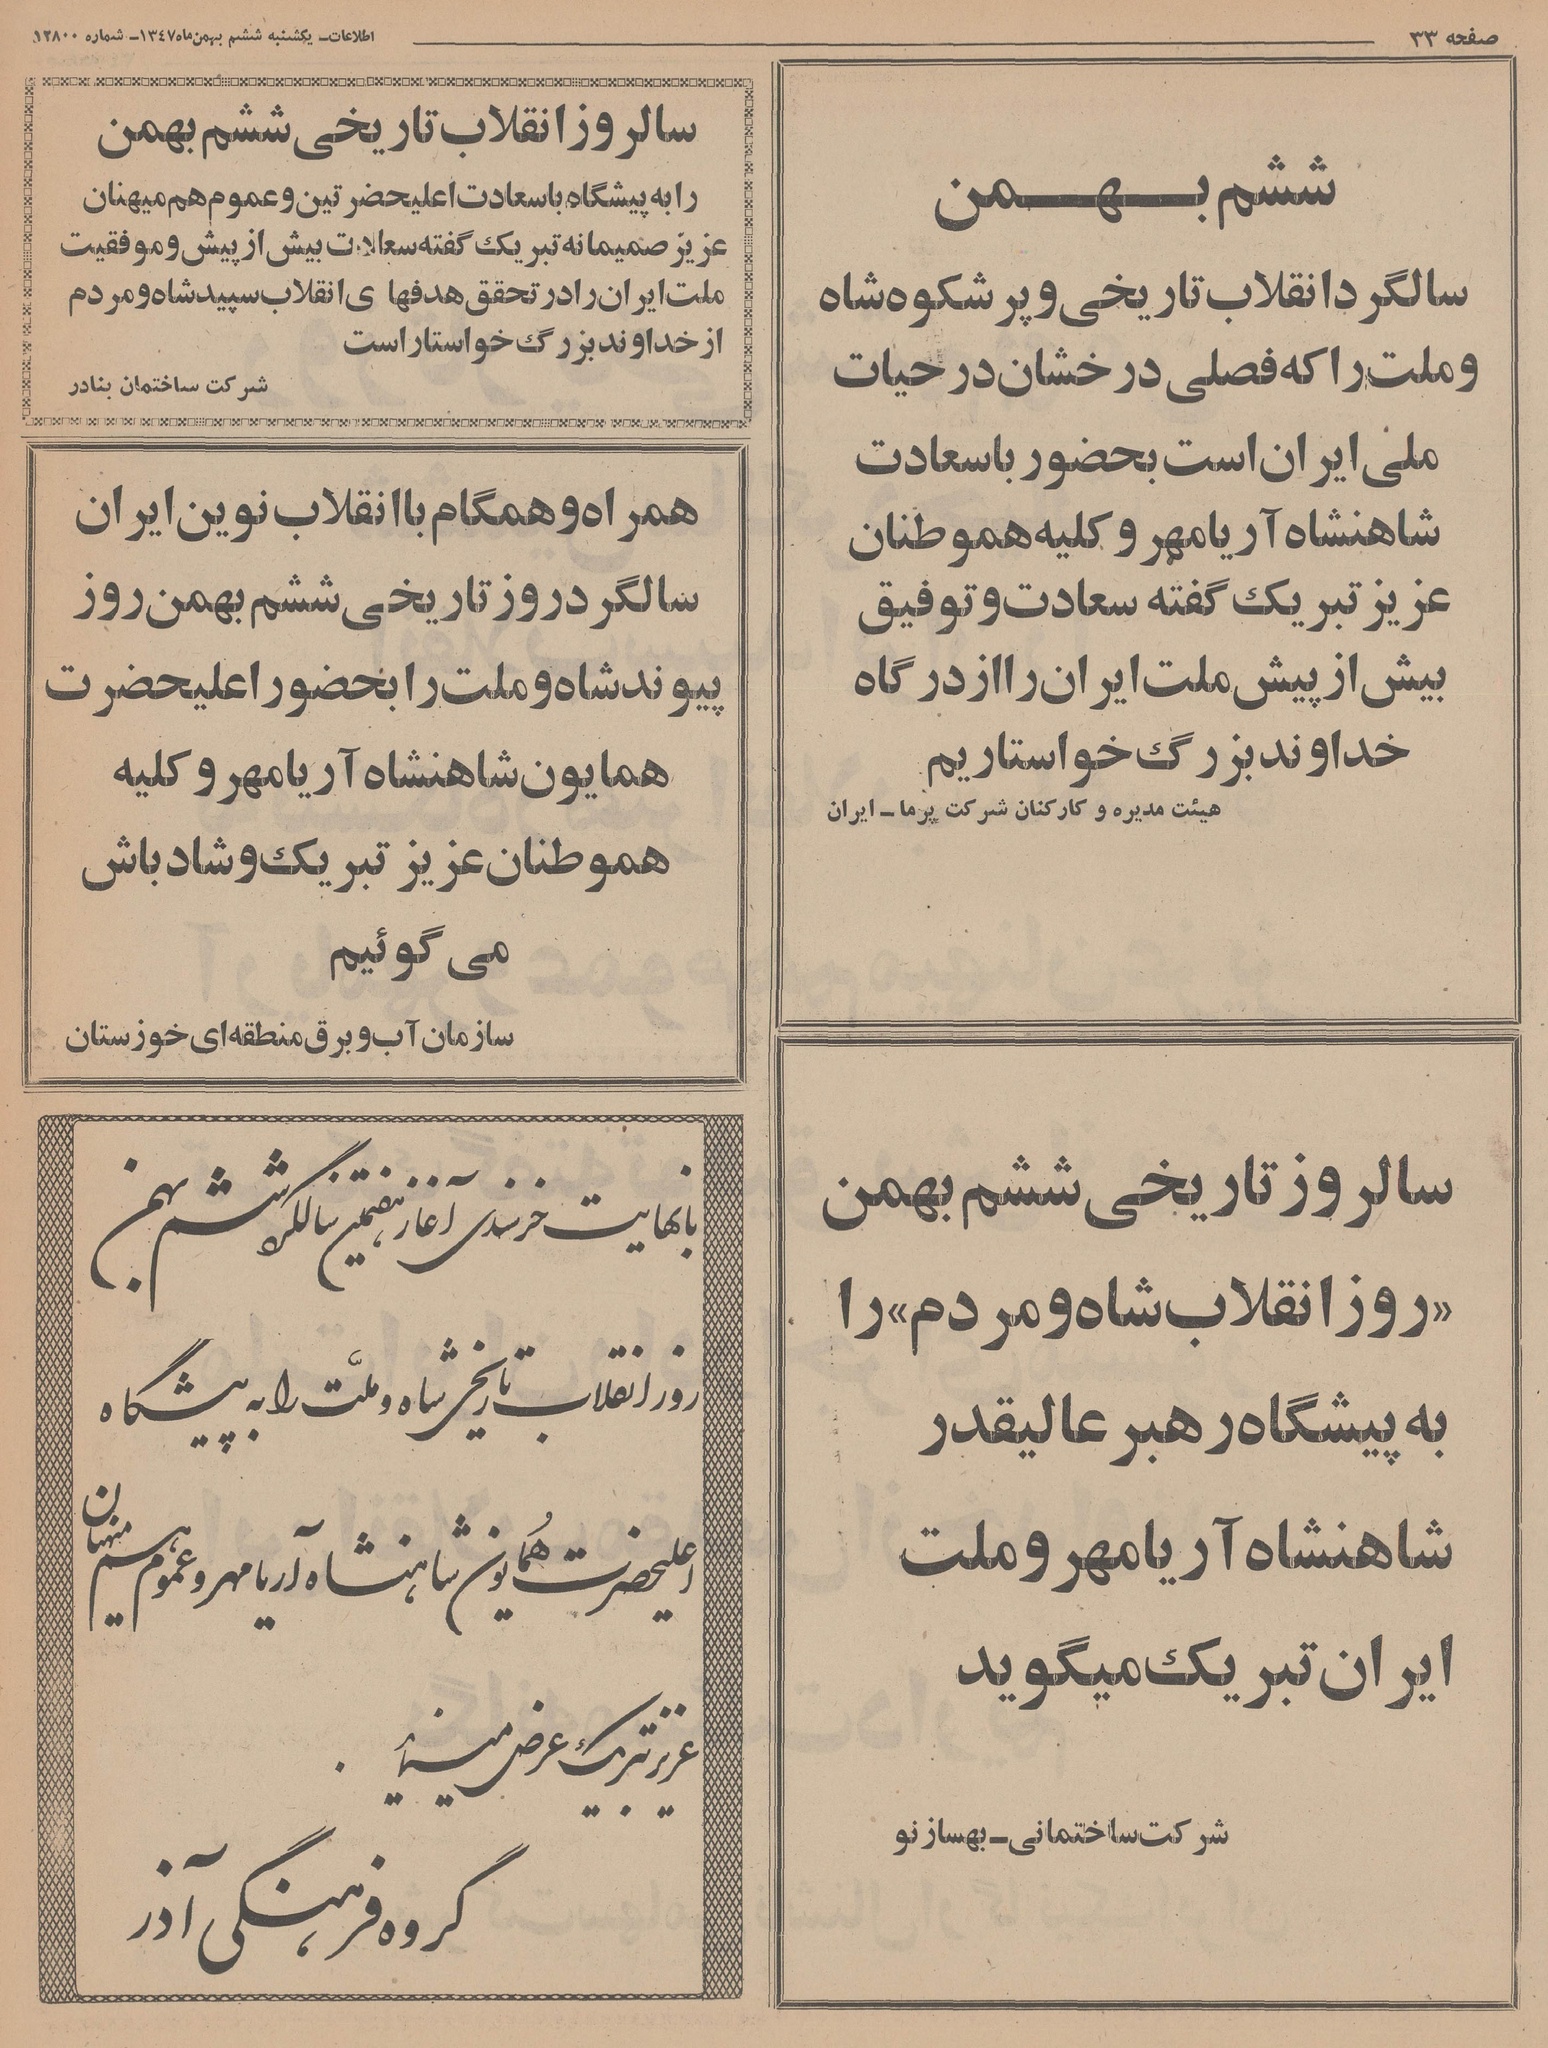 صفحه ۳۳
اطلاعات ـ یکشنبه ششم بهمن ماه ۱۳۴۷ ـ شماره ۱۲۸۰۰
ششم بهمن
سالگرد انقلاب تاریخی و پرشکوه شاه
و ملت را که فصلی درخشان در حیات
ملی ایران است بحضور باسعادت
شاهنشاه آریامهر و کلیه هموطنان
عزیز تبریک گفته سعادت و توفیق
بیش از پیش ملت ایران را از درگاه
خداوند بزرگ خواستاریم
هیئت مدیره و کارکنان شرکت پرما ـ ایران
سالروز تاریخی ششم بهمن
«روز انقلاب شاه و مردم» را
به پیشگاه رهبر عالیقدر
شاهنشاه آریامهر و ملت
ایران تبریک میگوید
شرکت ساختمانی ـ بهساز نو
سالروز انقلاب تاریخی ششم بهمن
را به پیشگاه باسعادت اعلیحضرتین و عموم هم میهنان
عزیز صمیمانه تبریک گفته سعادت بیش از پیش و موفقیت
ملت ایران را در تحقق هدفهای انقلاب سپید شاه و مردم
از خداوند بزرگ خواستار است
شرکت ساختمان بنادر
همراه و همگام با انقلاب نوین ایران
سالگرد روز تاریخی ششم بهمن روز
پیوند شاه و ملت را بحضور اعلیحضرت
همایون شاهنشاه آریامهر و کلیه
هموطنان عزیز تبریک و شادباش
می گوئیم
سازمان آب و برق منطقه ای خوزستان
با نهایت خرسندی آغاز هفتمین سالگرد ششم بهمن
روز انقلاب تاریخی شاه و ملت را به پیشگاه
اعلیحضرت همایون شاهنشاه آریامهر و عموم هم میهنان
عزیز تبریک عرض مینماید .
گروه فرهنگی آذر